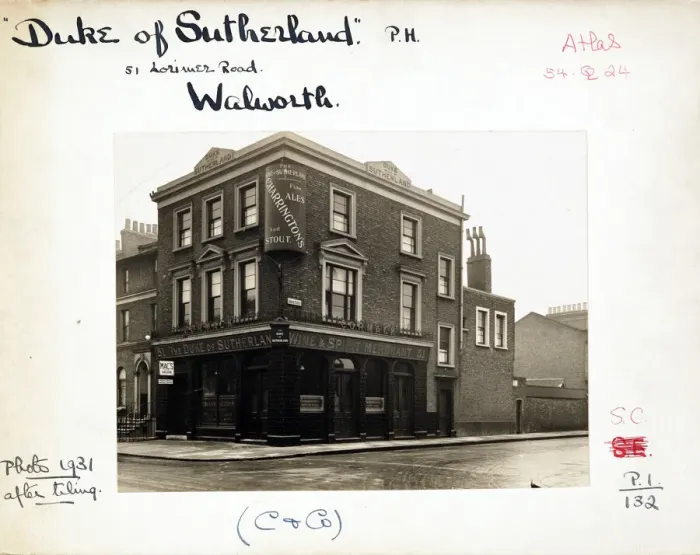 "Duke of Sutherland". P.H.
51 Lorimer Road.
Walworth.
Atlas
54. Q 24
DUKE
SUTHERLAND
DUKE
SUTHERLAND
THE
DUKE OF SUTHERLAND
FINE
ALES
CHARRINGTON'S
AND
STOUT.
51 THE DUKE OF SUTHERLAND
WINE & SPIRIT MERCHANT 51
MAC'S
S.C.
S.E.
P.1.
132
Photo 1931
after tiling.
(C & Co)